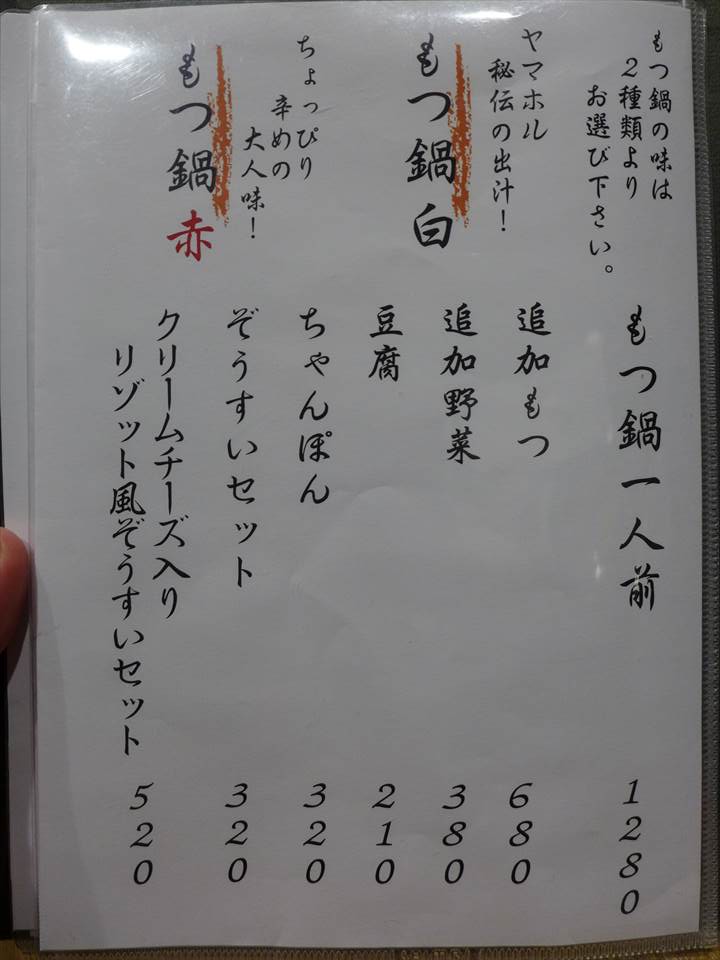 もつ鍋の味は
2種類より
お選び下さい。
ヤマホル
秘伝の出汁!
もつ鍋 白
ちょっぴり
辛めの
大人味!
もつ鍋 赤
もつ鍋一人前 1280
追加もつ 680
追加野菜 380
豆腐 210
ちゃんぽん 320
ぞうすいセット 320
クリームチーズ入り
リゾット風ぞうすいセット 520